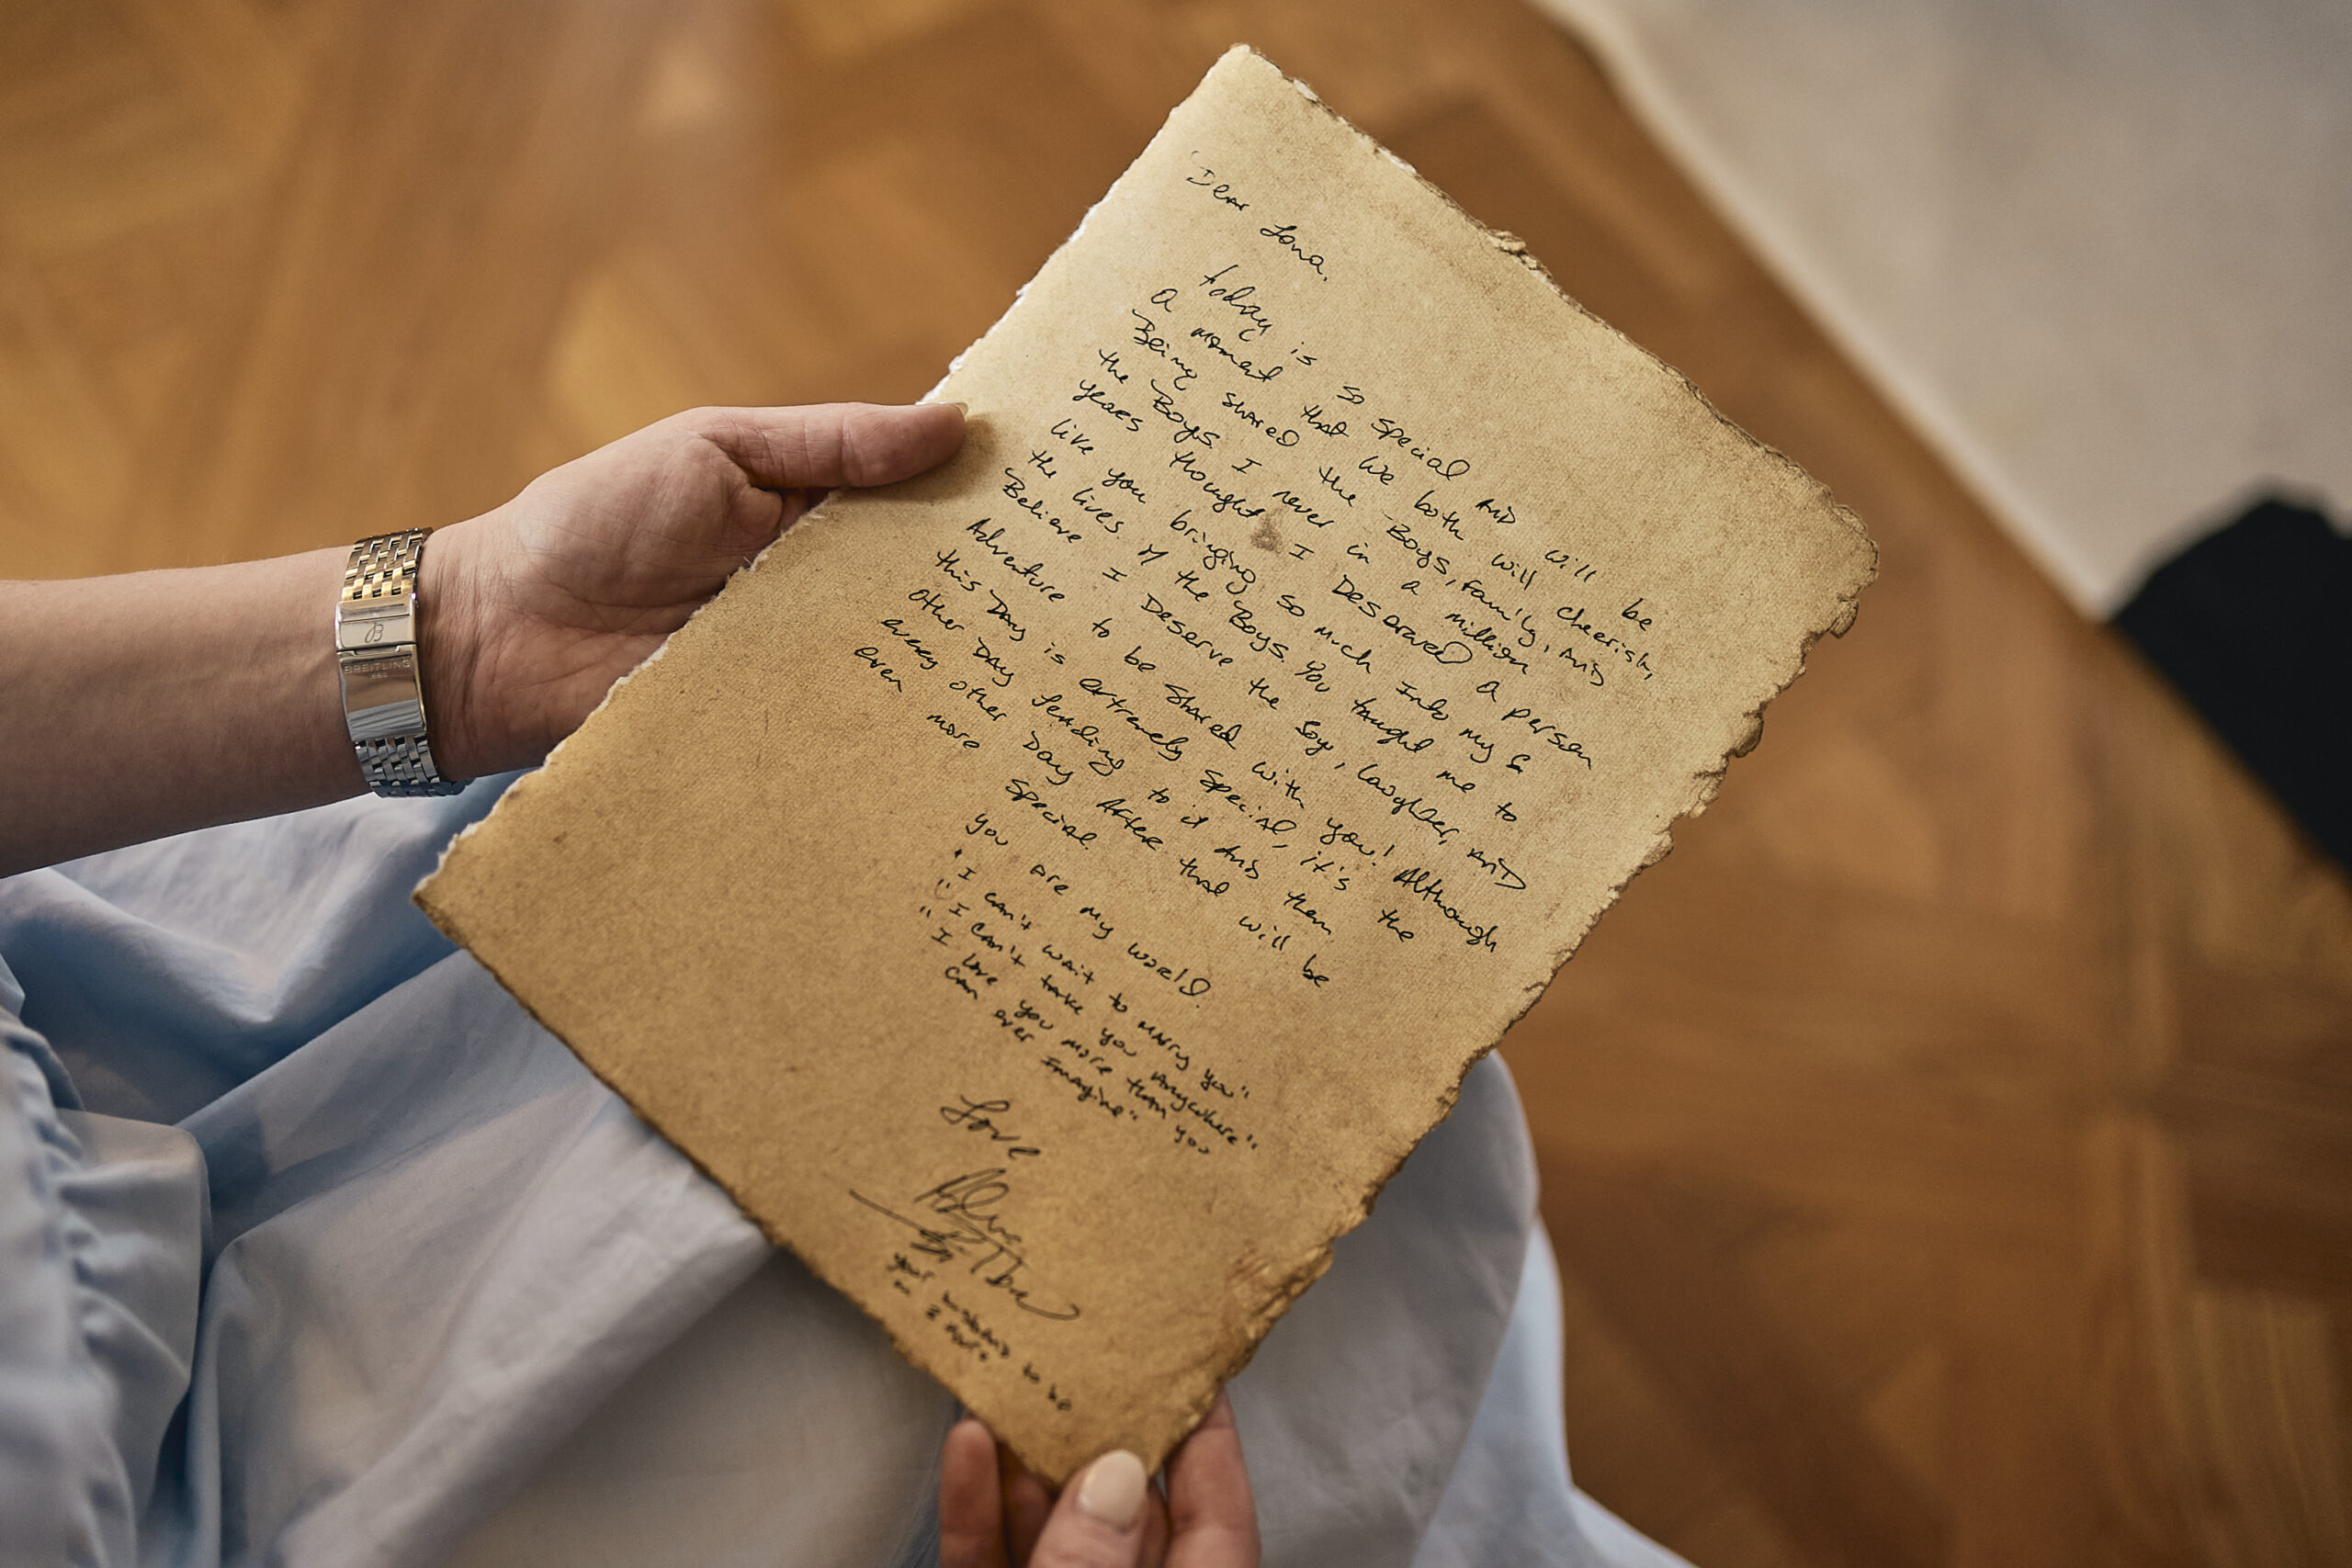 Dear Lona,
today is so special AND will be
A moment that we both will cherish,
Being shared the Boys, family, AND
the Boys. I never in a million
years thought I Deserved a person
like you bringing so much Into my &
the lives of the Boys. You taught me to
Believe I Deserve the Joy, laughter, AND
Adventure to be shared with you! Although
this Day is extremely special, it's the
other Day leading to it AND then
every other Day After that will be
even more special.
you are my world.
"I can't wait to marry you"
"I can't take you Anywhere"
"I love you more than you
can ever Imagine"
Love
your husband to be
in
BREITLING
1884